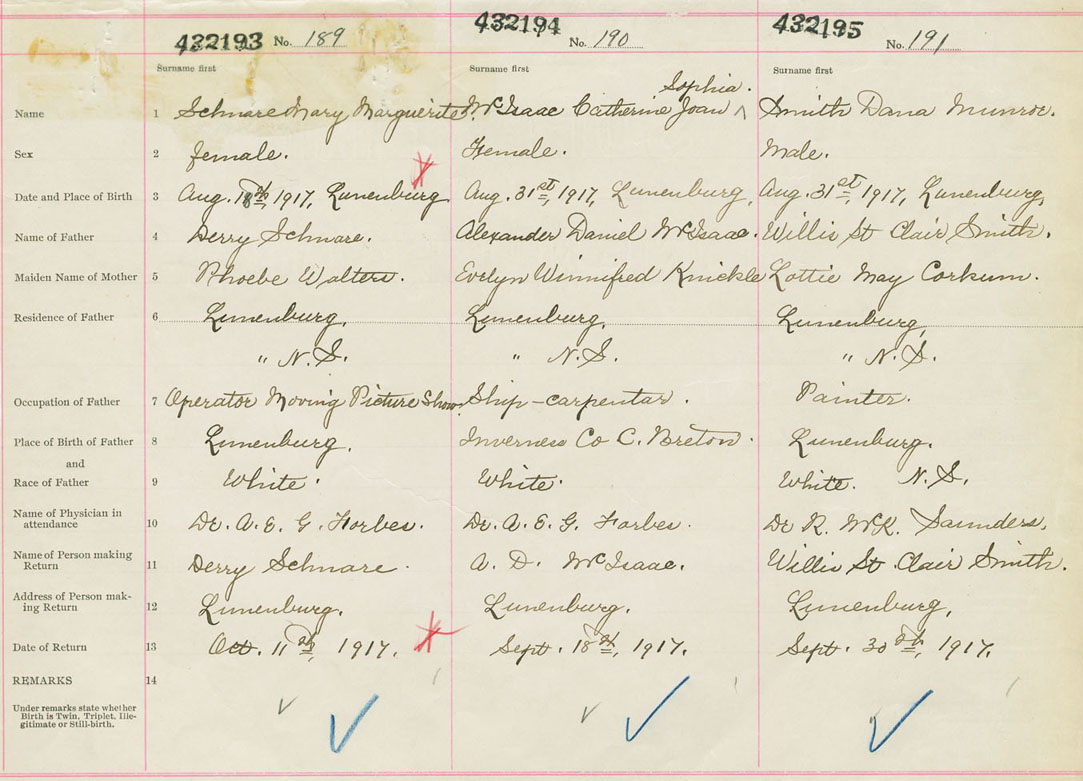 432193 No. 189 432194 No. 190 432195 No. 191
Surname first Surname first Surname first
Sophia.
Name 1 Schnare Mary Marguerite. McIsaac Catherine Joan ^ Smith Dana Munroe.
Sex 2 female. Female. Male.
Date and Place of Birth 3 Aug. 18th, 1917, Lunenburg Aug. 31st, 1917, Lunenburg, Aug. 31st 1917, Lunenburg,
Name of Father 4 Derry Schnare. Alexander Daniel McIsaac. Willis St Clair Smith.
Maiden Name of Mother 5 Phoebe Walters. Evelyn Winnifred Knickle Lottie May Corkum.
Residence of Father 6 Lunenburg, Lunenburg, Lunenburg,
" N.S. " N.S. " N.S.
Occupation of Father 7 Operator Moving Picture Show. Ship-carpentar. Painter.
Place of Birth of Father 8 Lunenburg. Inverness Co C. Breton. Lunenburg.
and
N.S.
Race of Father 9 White. White. White.
Name of Physician in
attendance 10 Dr. A. E. G. Forbes. Dr. A. E. G. Forbes. Dr R. McK. Saunders.
Name of Person making
Return 11 Derry Schnare. A. D. McIsaac. Willis St. Clair Smith.
Address of Person mak-
ing Return 12 Lunenburg. Lunenburg. Lunenburg,
Date of Return 13 Oct. 11th, 1917. Sept. 18th, 1917. Sept. 30th, 1917.
REMARKS 14
Under remarks state whether
Birth is Twin, Triplet, Ille-
gitimate or Still-birth.